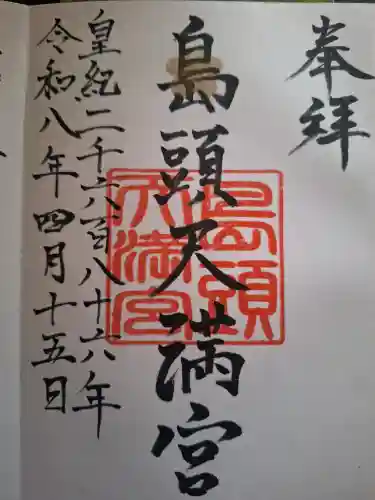 奉拝
島頭天満宮
島頭
天満宮
皇紀二千六百八十六年
令和八年四月十五日